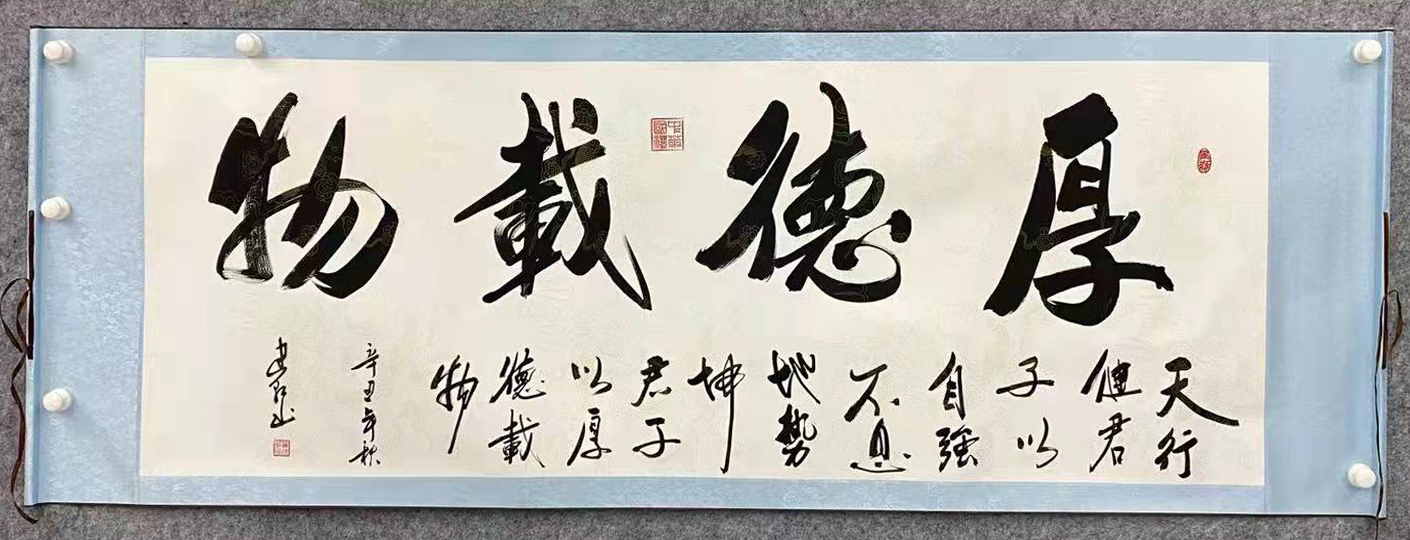 厚德載物
天行
健君
子以
自強
不息
地勢
坤
君子
以厚
德載
物
辛丑年秋